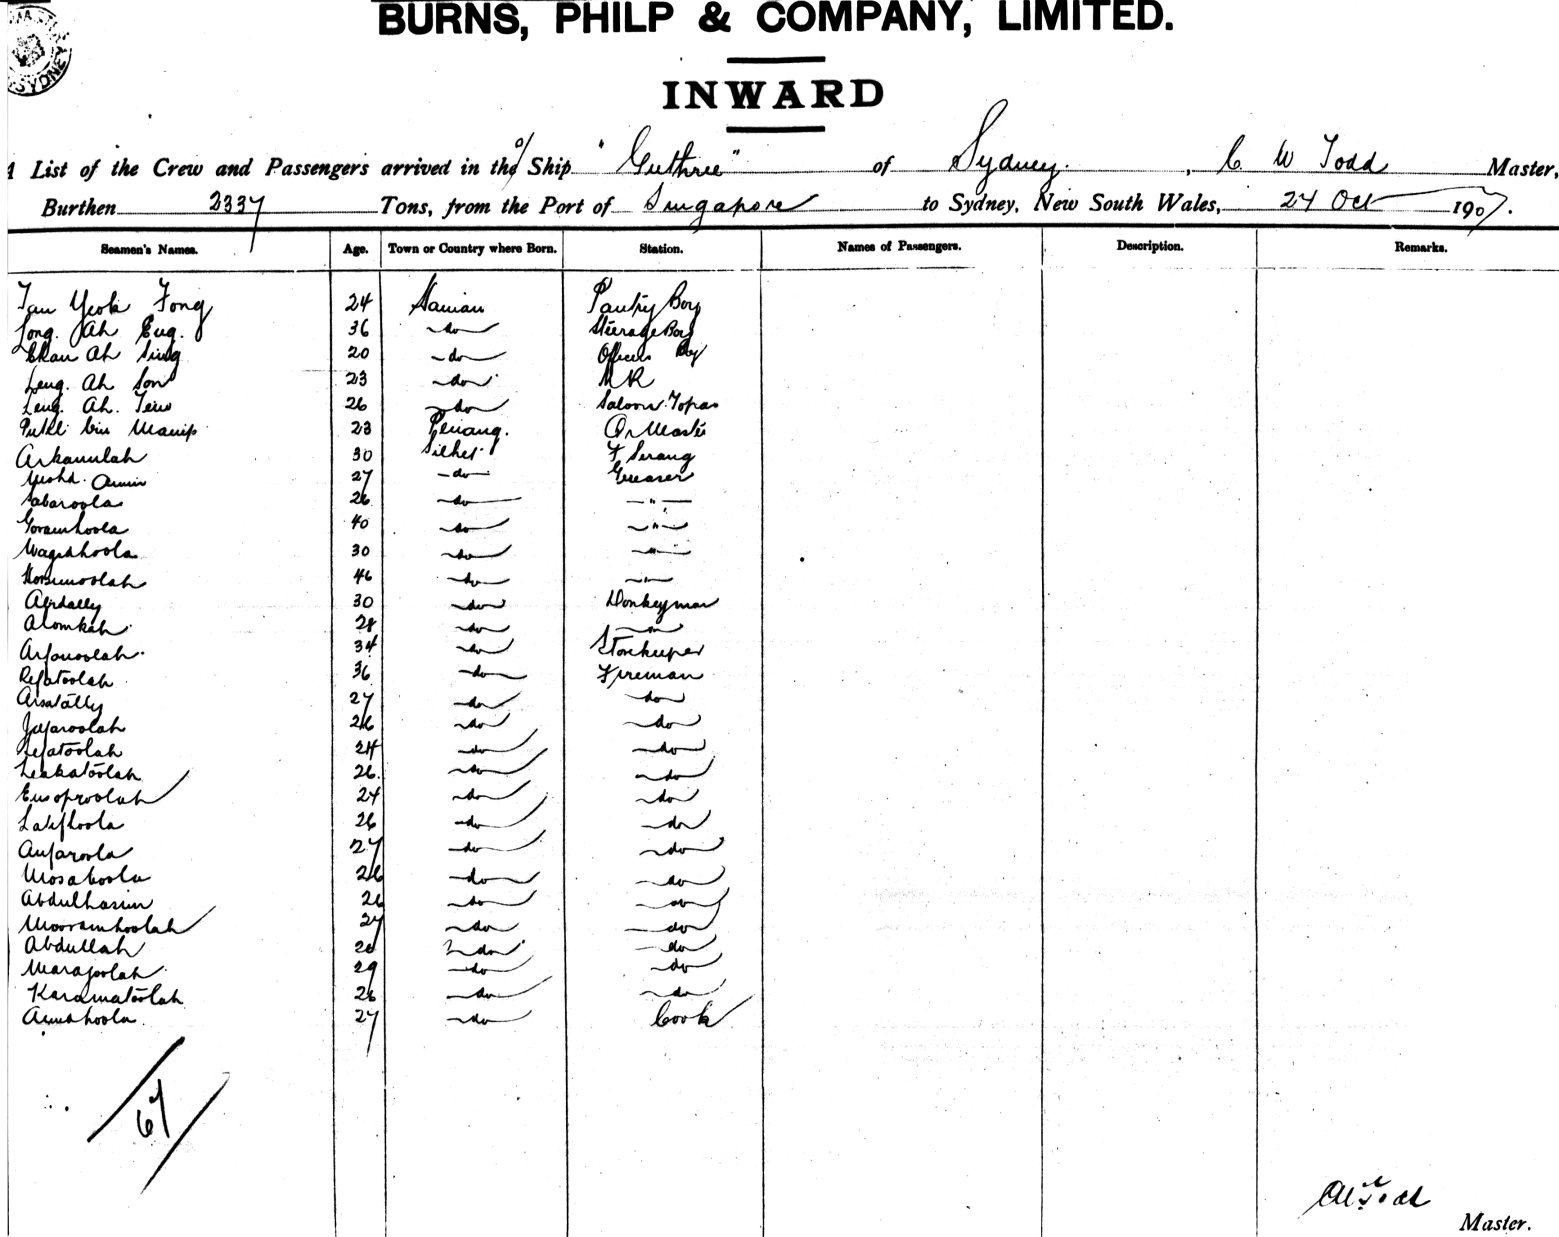 SYDNEY
BURNS, PHILP & COMPANY, LIMITED.
INWARD
A List of the Crew and Passengers arrived in the s/ Ship "Guthrie" of Sydney. , C W Todd Master,
Burthen 2337 Tons, from the Port of Singapore to Sydney, New South Wales, 24 Oct 1907.
Seamen's Names. Age. Town or Country where Born. Station. Names of Passengers. Description. Remarks.
Tan Yeok Fong 24 Hainan Pantry Boy
Long. Ah Eug. 36 -do- Steerage Boy
Chan Ah Sing 20 -do- Officers Boy
Leng. Ah Son 23 -do-
Leng. Ah. 26 -do- Saloon Topas
bin 23 Penang. Qr Master
Arkanulah 30 Silhet. F Serang
Mohd. Amin 27 -do- Greaser
Sabaroola 26 -do- -"-
Goramhoola 40 -do- -"-
Wagidhoola 30 -do- -"-
46 -do- -"-
Abdally 30 -do- Donkeyman
Alomkah. 28 -do- -"-
Arfanoolah. 34 -do- Storekeeper
Refatoolah 36 -do- Fireman
Arsatally 27 -do- -do-
Jafaroolah 26 -do- -do-
Refatoolah 24 -do- -do-
Leakatoolah 26. -do- -do-
Eusoproolah 24 -do- -do-
Latifhoola 26 -do- -do-
Anfaroola 27 -do- -do-
Mosaboola 26 -do- -do-
Abdulhasim 26 -do- -do-
Mooramhoolah 27 -do- -do-
Abdullah 26 -do- -do-
Marafoolah 29 -do- -do-
Karamatoolah 26 -do- -do-
27 -do- Cook
67
CW Todd
Master.